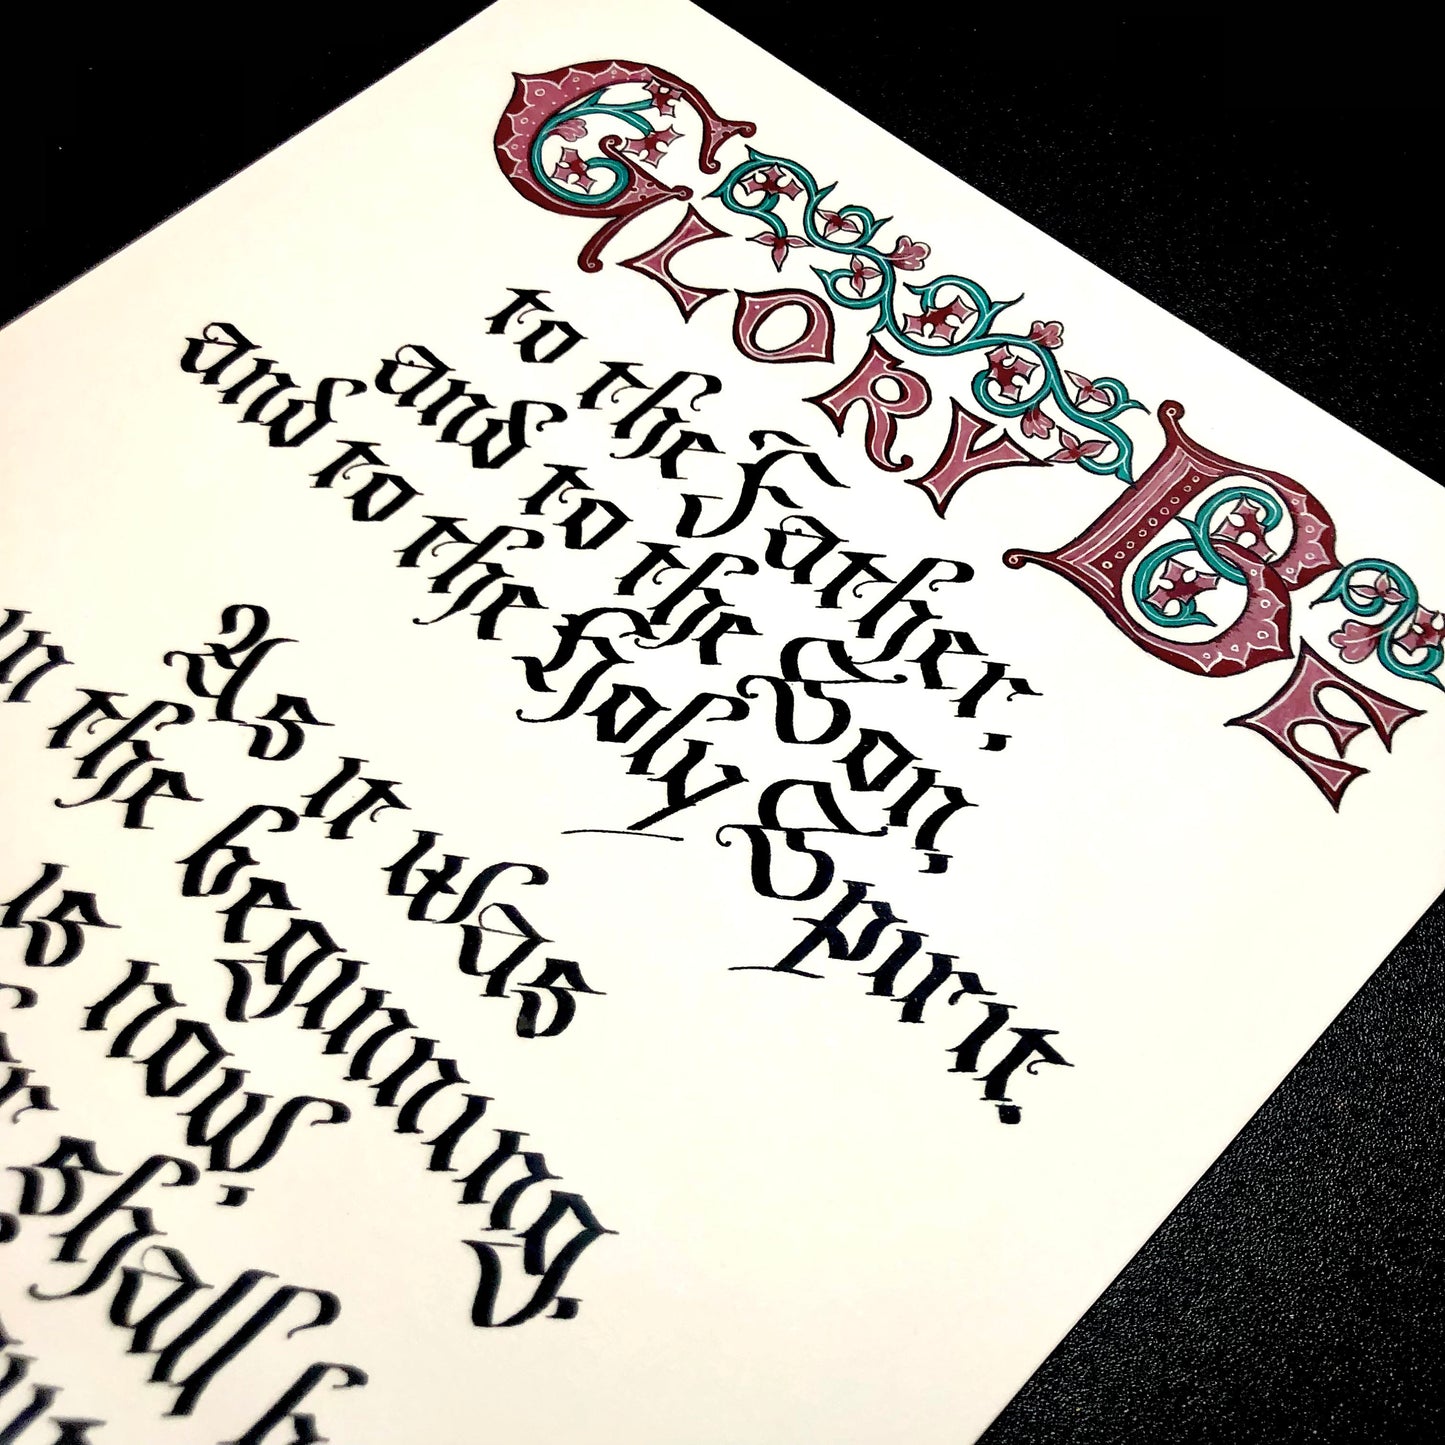 GLORY BE
to the Father,
and to the Son,
and to the Holy Spirit.
As it was
in the beginning,
is now,
shall